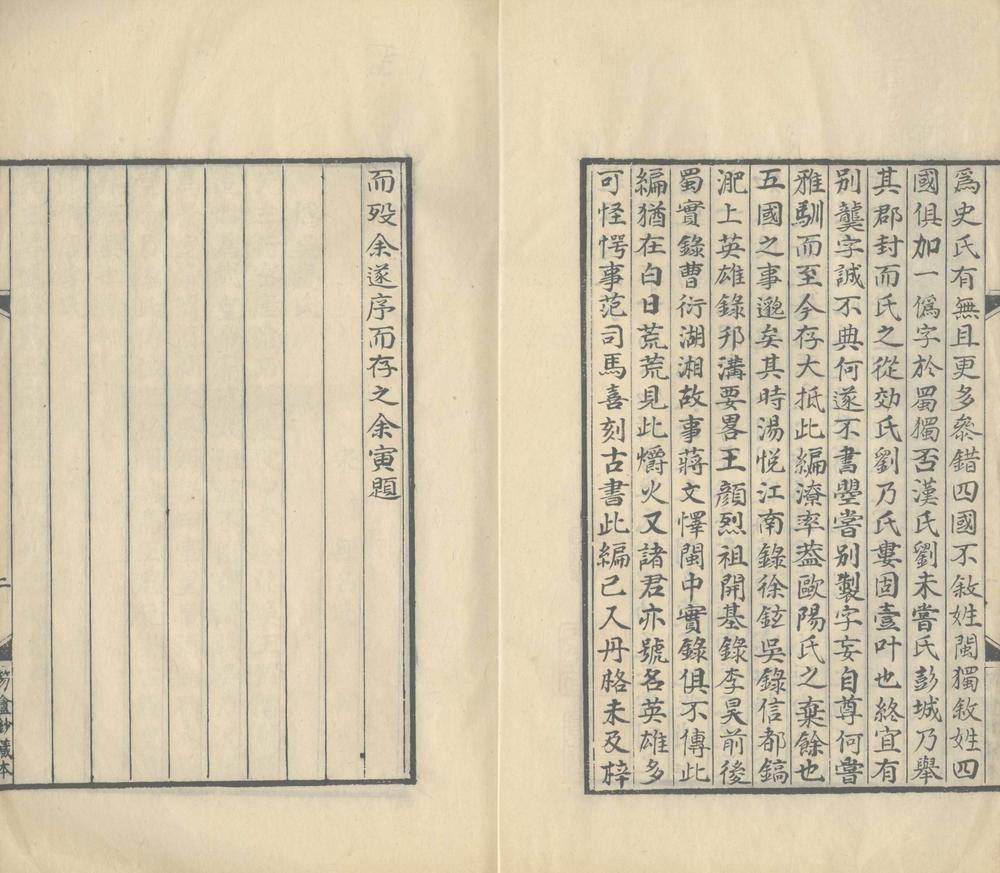 爲史氏有無且更多叅錯四國不敘姓閩獨敘姓四
國俱加一僞字於蜀獨否漢氏劉未嘗氏彭城乃舉
其郡封而氏之從効氏劉乃氏婁固壹叶也終宜有
别龑字誠不典何遂不書曌嘗别製字妄自尊何嘗
雅馴而至今存大抵此編潦率葢歐陽氏之棄餘也
五國之事邈矣其時湯悅江南錄徐鉉吳錄信都鎬
淝上英雄錄邗溝要畧王顔烈祖開基錄李昊前後
蜀實錄曹衍湖湘故事蔣文懌閩中實錄俱不傳此
編猶在白日荒荒見此爝火又諸君亦號名英雄多
可怪愕事范司馬喜刻古書此編已入丹格未及梓
而歿余遂序而存之余寅題
二
芴盦鈔藏本